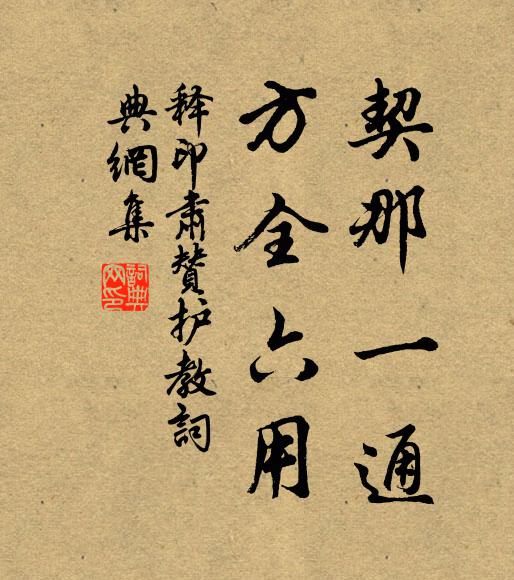 契那一通
方全六用
释印肃赞护教词
典網集
詞典網印